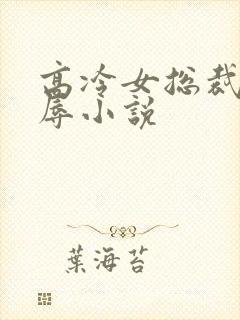 高冷女总裁
辱小说
葉海苔